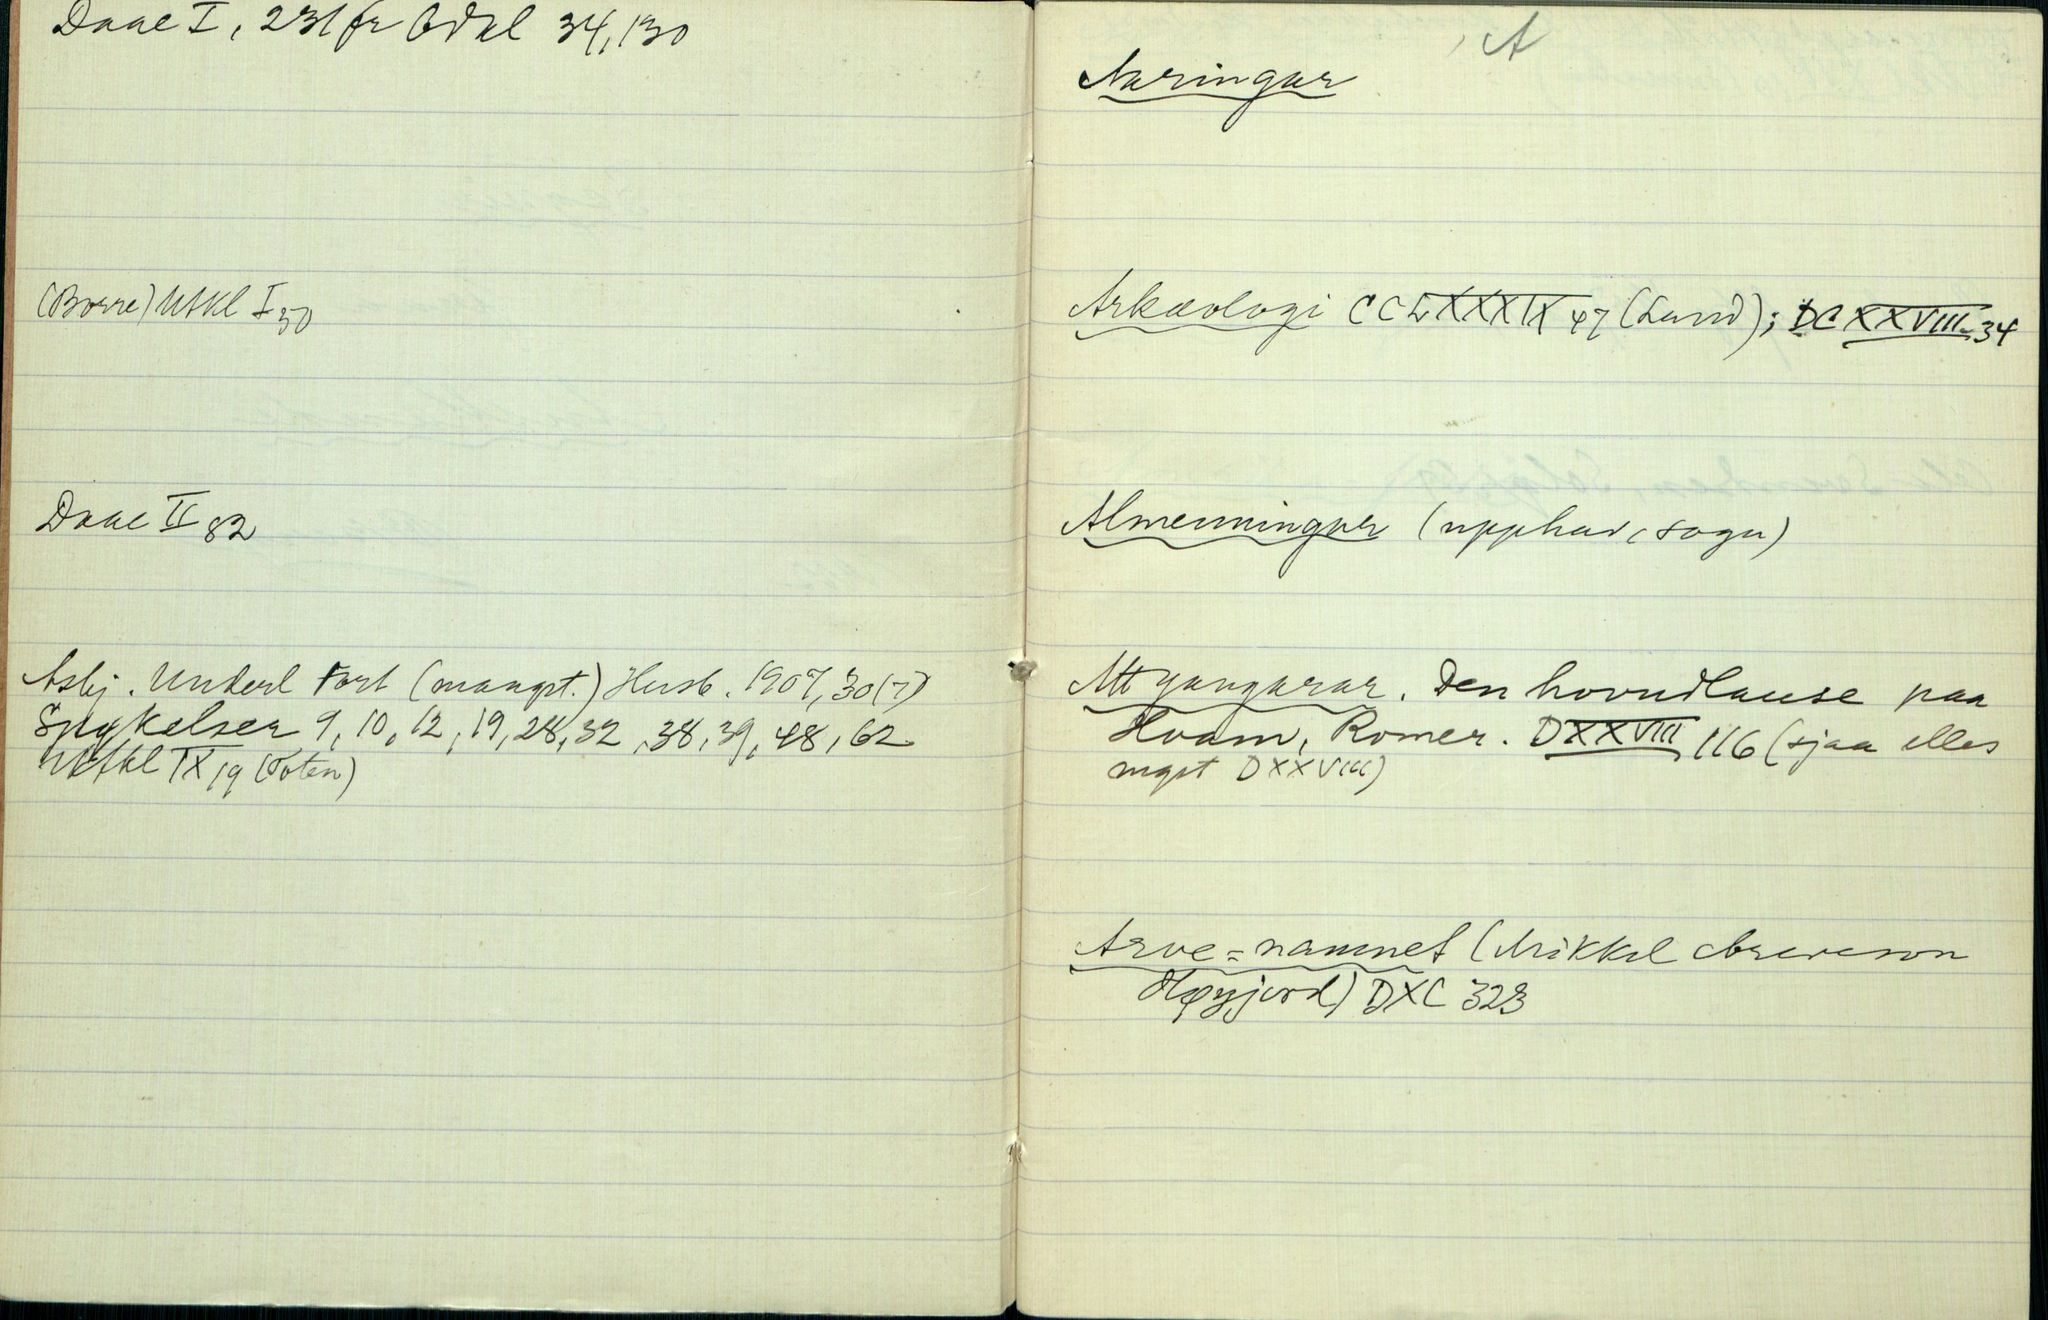 Daae I, 231 fr Odal 34, 130
(Borre) Utkl I 30
Daae II 82
Asbj. Underl Fort (mangst.) Husb. 1907, 30(7)
Spykelser 9, 10, 12, 19, 28, 32, 38, 39, 48, 62
Utkl IX 19 (Toten)
A
Aaringar
Arkæologi CCLXXXIX 47 (Lund); DCXXVIII 34
Almenningar (upphav, sogu)
Attgangarar. Den hovudlause paa
Hvam, Romer. DXXVIII 116 (sjaa elles
mgst DXXVIII)
Arve=namnet (Mikkel
Høyjord) DXC 323